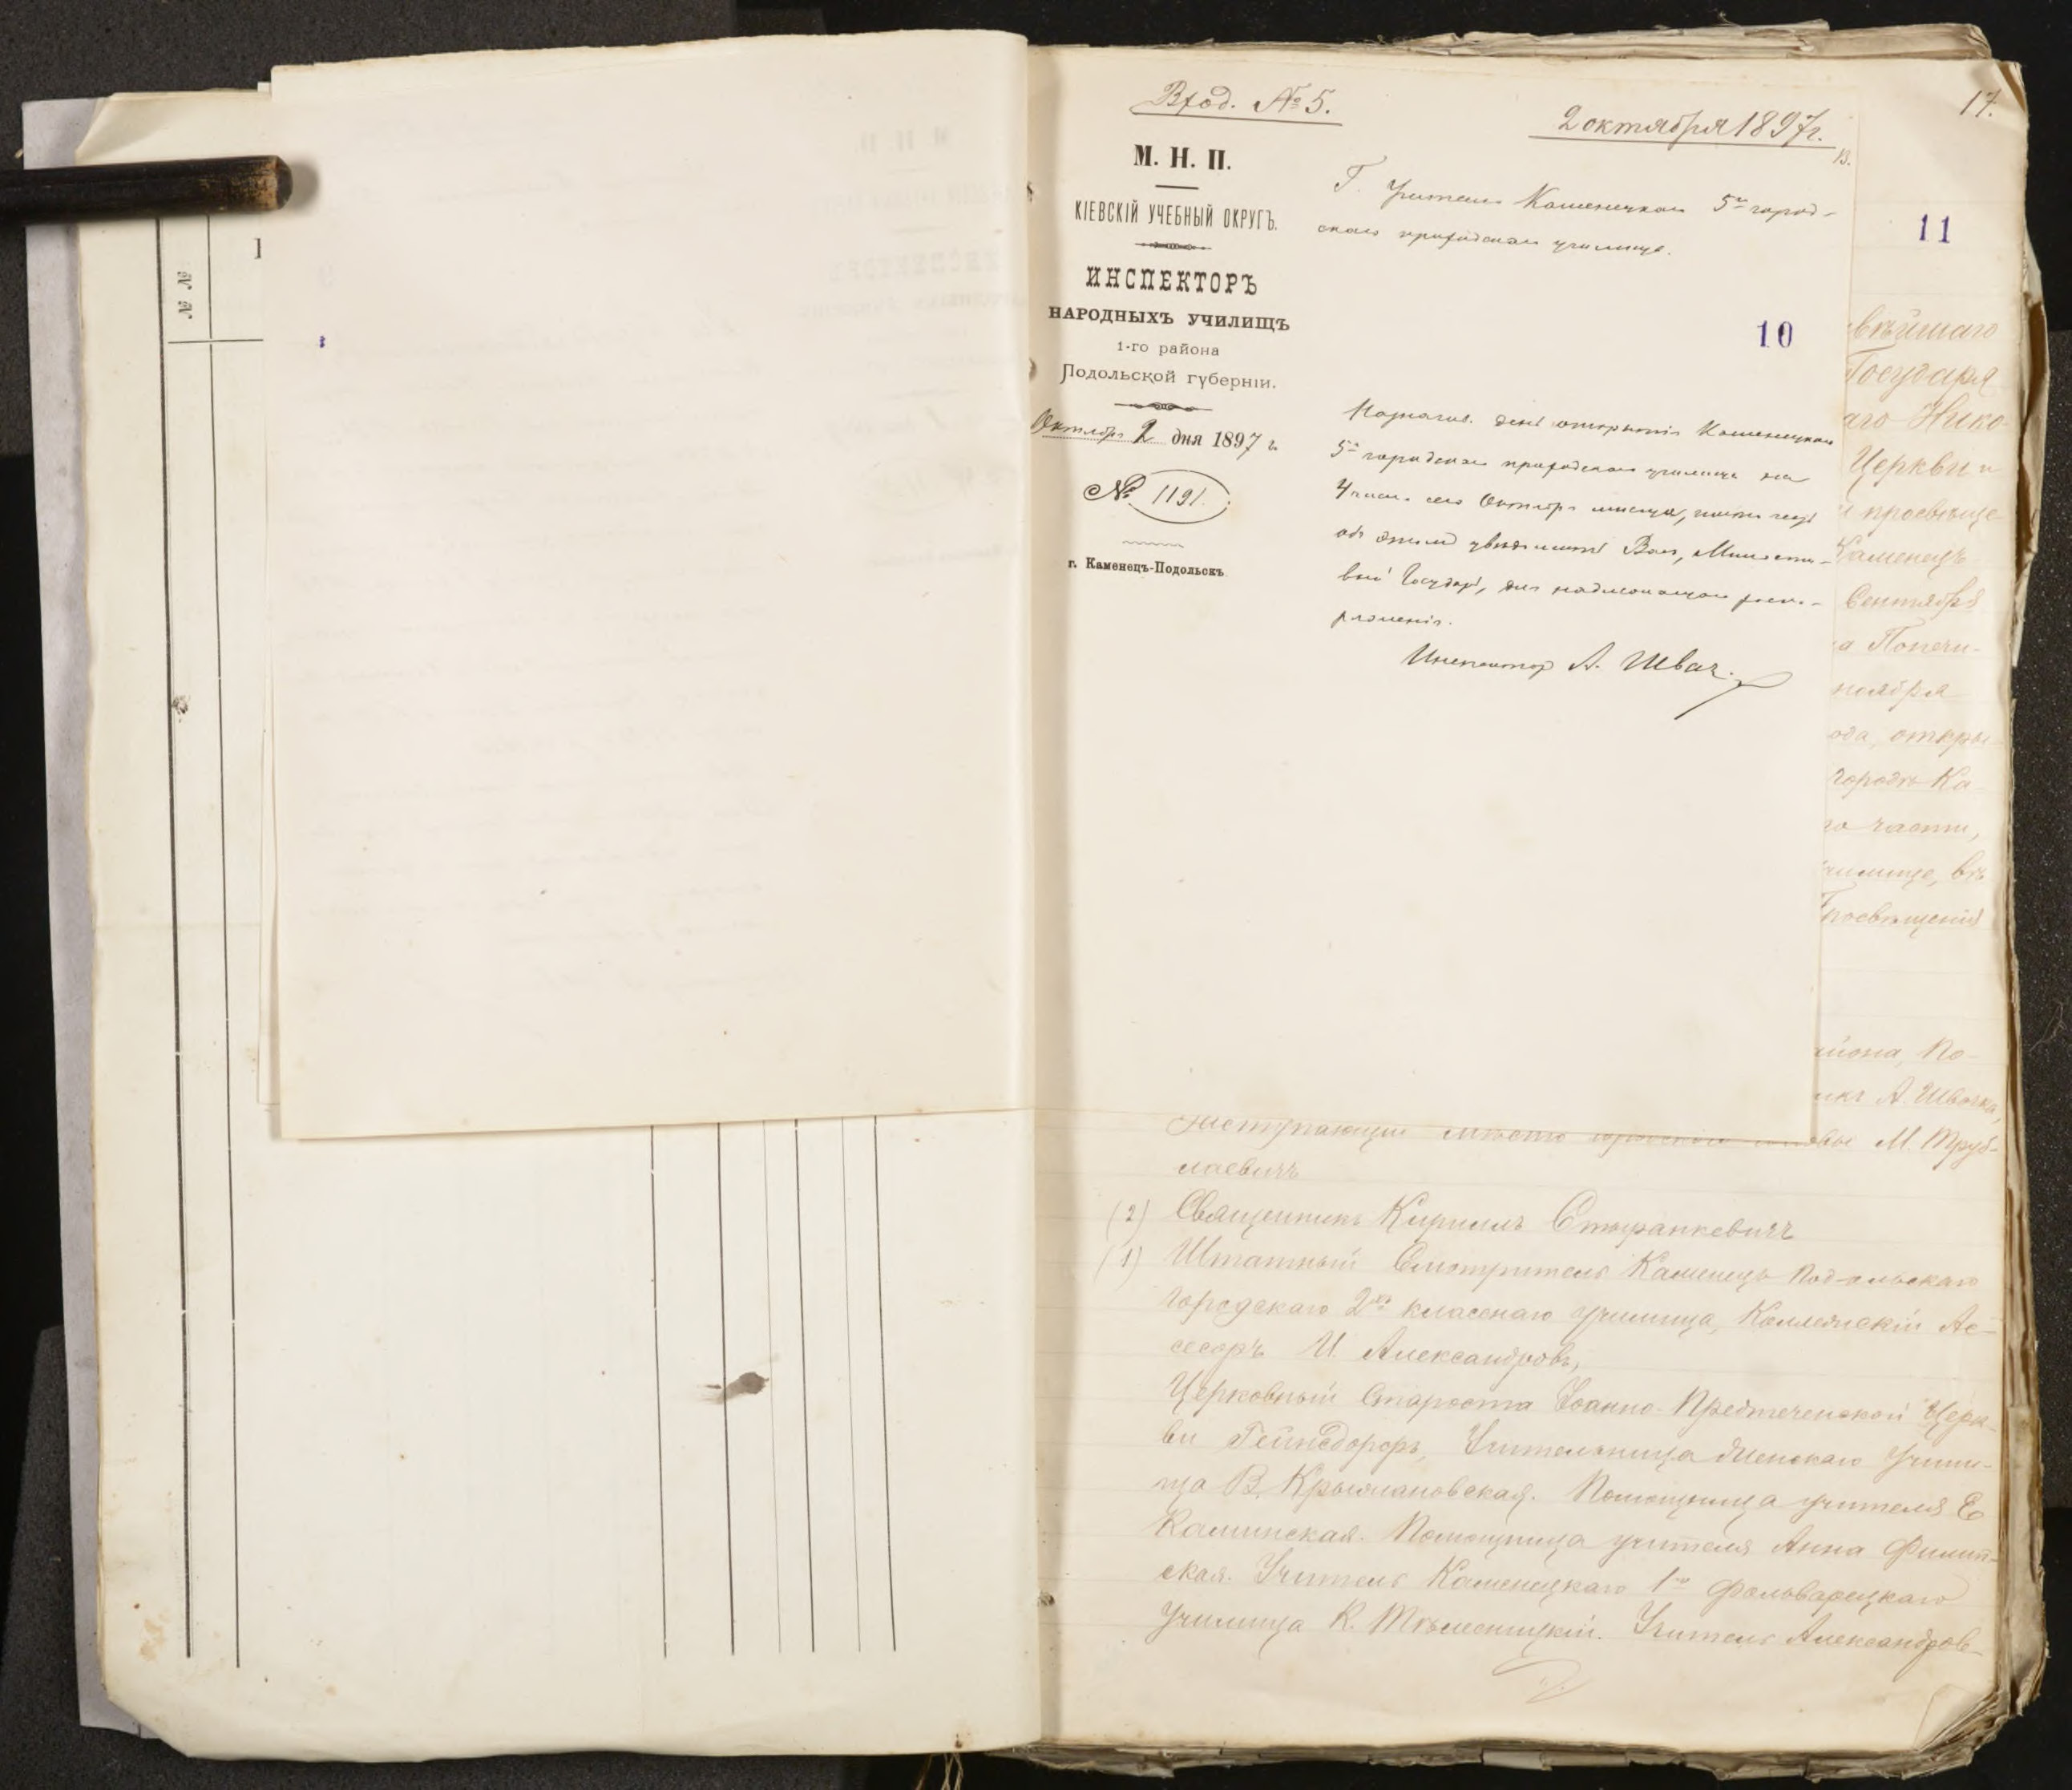 № №
1
Вход. № 5.
2 октября 1897 г.
17.
13.
М. Н. П.
КІЕВСКІЙ УЧЕБНЫЙ ОКРУГЪ.
ИНСПЕКТОРЪ
НАРОДНЫХЪ УЧИЛИЩЪ
1-го района
Подольской губерніи.
Октября 2 дня 1897 г.
№ 1191.
г. Каменецъ-Подольскъ
Г. Учителю Каменецкаго 5го город-
скаго приходскаго училища.
10
Назначив. день открытія Каменецкаго
5го городскаго приходскаго училища на
4 число сего Октября мѣсяца, имѣю честь
объ этомъ увѣдомить Васъ, Милости-
вый Государь, для надлежащаго распо-
ряженія.
Инспектор А. Швач.
11
вѣйшаго
Государя
аго Нико-
Церкви и
просвѣще-
Каменецъ
Сентября
а Попечи-
ноября
ода, откры-
городѣ Ка-
го части,
училище, въ
Просвѣщенія
айона, По-
икъ А. Швачка,
Заступающій мѣсто городского головы М. Труб-
лаевичъ
(2) Священникъ Кириллъ Стефанкевичъ
(1) Штатный Смотритель Каменецъ Подольскаго
городскаго 2хъ класснаго училища, Коллежскій Ас-
сесоръ И. Александровъ,
Церковный Староста Іоанно-Предтеченской Церк-
ви Гейнсдорфъ, Учительница Женскаго Учили-
ща В. Крыжановская. Помощница учителя Е
Каминская. Помощница учителя Анна Филип-
ская. Учитель Каменецкаго 1го Фольварецкаго
Училища К. Тѣлесницкій. Учитель Александров-